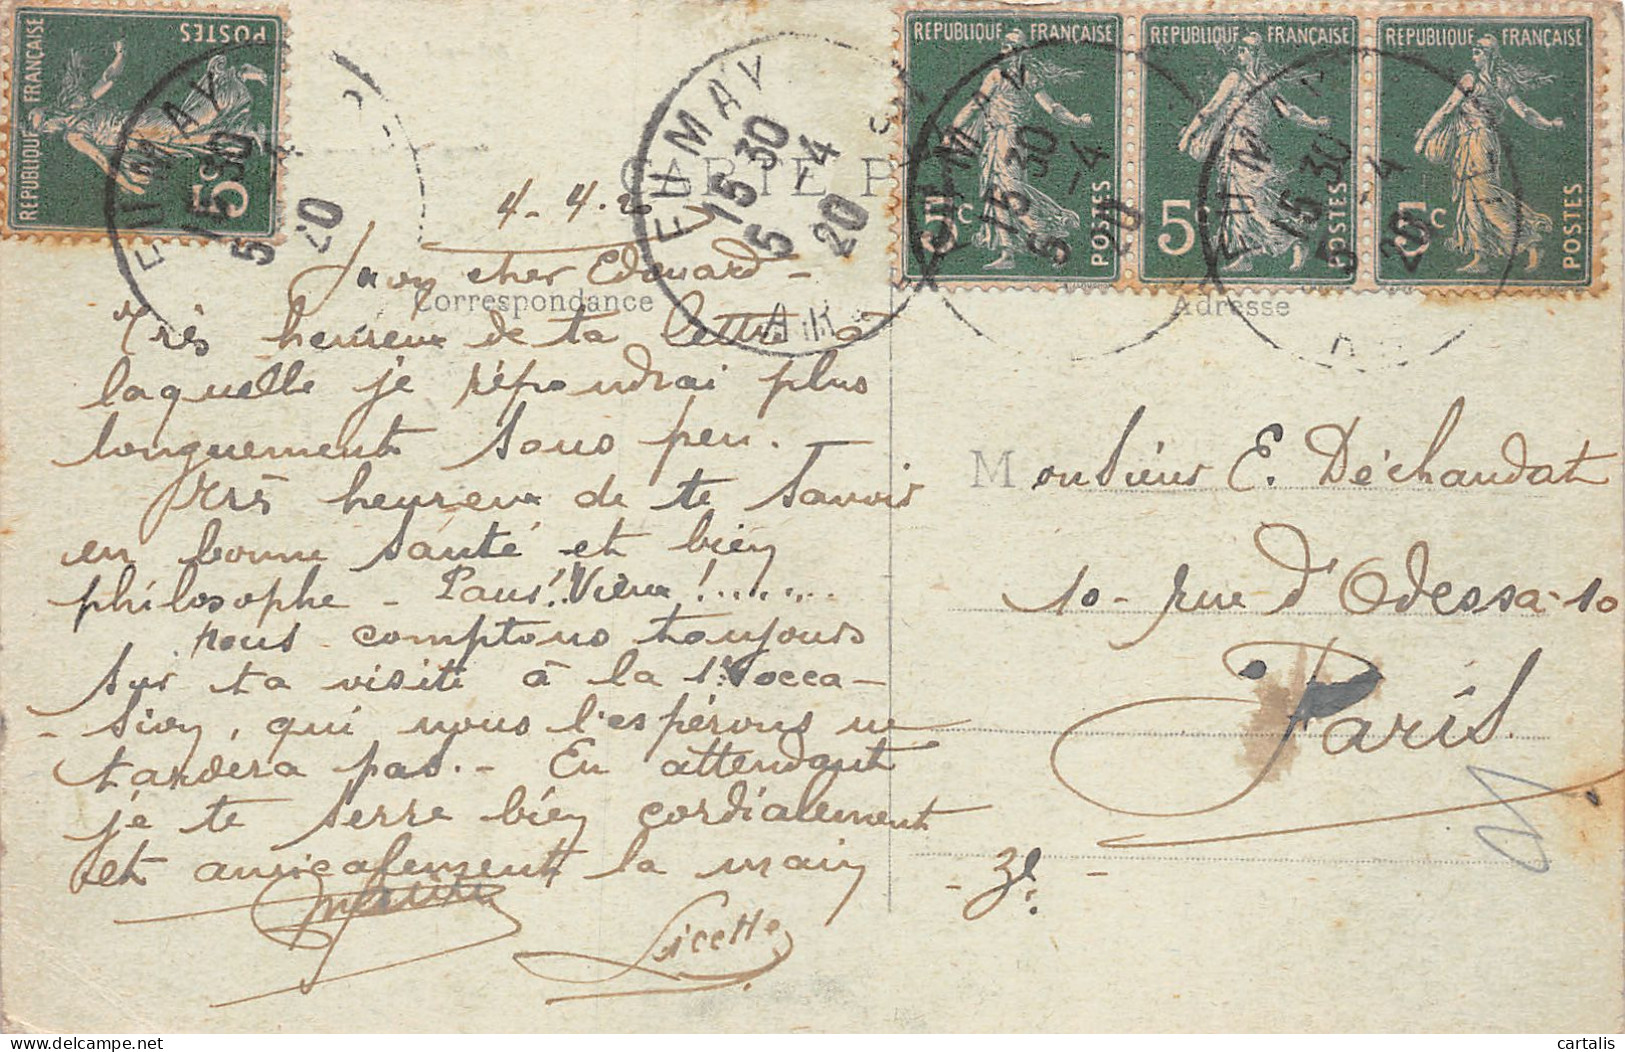 REPUBLIQUE FRANÇAISE
POSTES
5c
FUMAY
15 30
5 -4
20
FUMAY
15 30
5 -4
20
REPUBLIQUE FRANÇAISE
5c
POSTES
REPUBLIQUE FRANÇAISE
5c
POSTES
REPUBLIQUE FRANÇAISE
5c
POSTES
FUMAY
15 30
5 -4
20
FUMAY
15 30
5 -4
20
CARTE P
4-4-2
Mon cher Edouard -
Correspondance
Adresse
Très heureux de ta lettre à
laquelle je répondrai plus
longuement sous peu. -
Très heureux de te savoir
en bonne santé et bien
philosophe - Paus! Vieux!........
nous comptons toujours
sur ta visite à la 1re occa-
-sion, qui nous l'espérons ne
tardera pas. - En attendant
je te serre bien cordialement
et amicalement la main
Licette
Monsieur E. Déchaudat
10 - rue d'Odessa - 10
Paris.